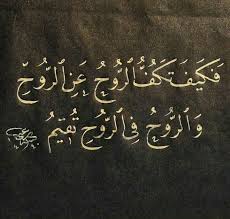 فَكَيْفَ تَكُفُّ الرُّوحُ عَنِ الرُّوحِ
وَالرُّوحُ فِي الرُّوحِ تُقِيمُ